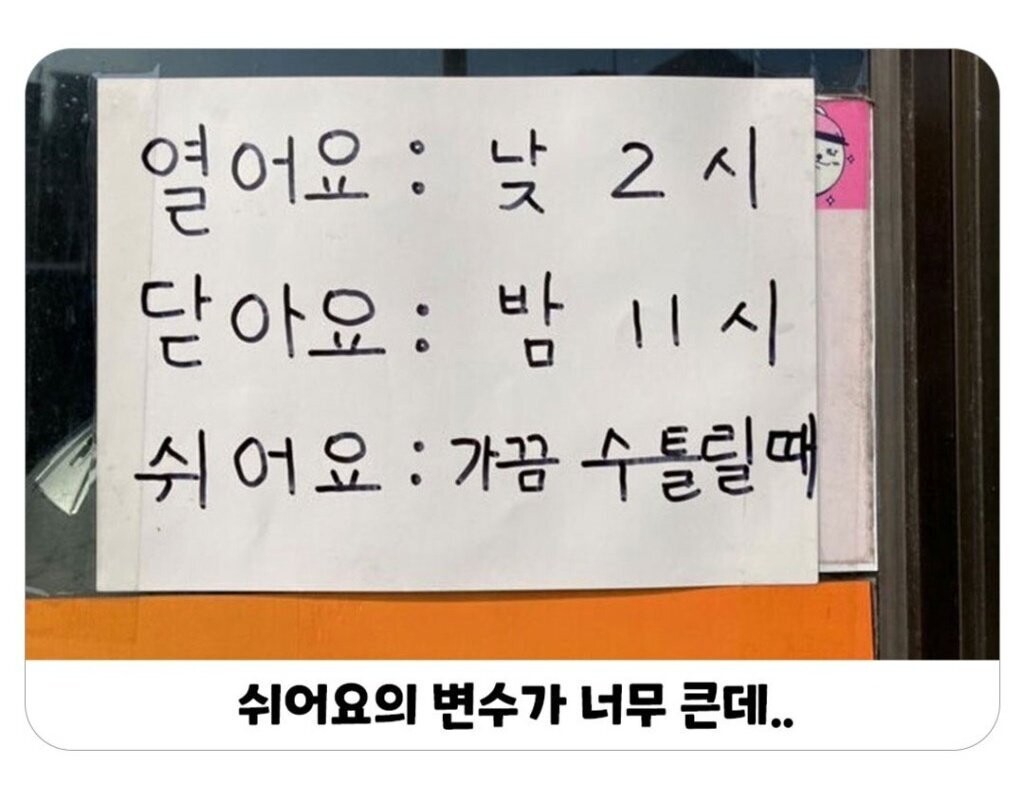 열어요 : 낮 2시
닫아요 : 밤 11시
쉬어요 : 가끔 수틀릴때
쉬어요의 변수가 너무 큰데..